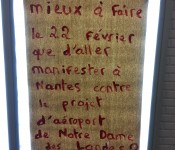 mieux à faire
le 22 février
que d'aller
manifester à
Nantes contre
le projet
d'aéroport
de Notre Dame
des Landes?